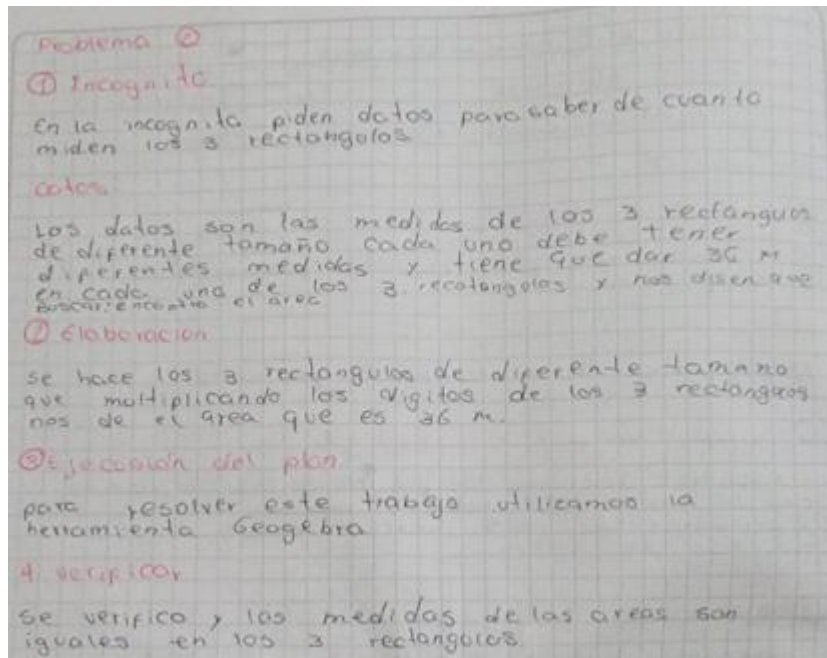 Problema ②
① Incognita
En la incognita piden datos para saber de cuanto
miden los 3 rectangolos
datos
Los datos son las medidas de los 3 rectangulos
de diferente tamaño cada uno debe tener
diferentes medidas y tiene que dar 36 m
en cada una de los 3 recotangolos y nos disen que
el area
② Elaboracion
se hace los 3 rectangulos de diferente tamano
que multiplicando los digitos de los 3 rectangulos
nos de el area que es 36 m.
③ Ejecucion del plan
para resolver este trabajo utilicamos la
herramienta Geogebra
4 verificar
se verifico y las medidas de las areas son
iguales en los 3 rectangolos